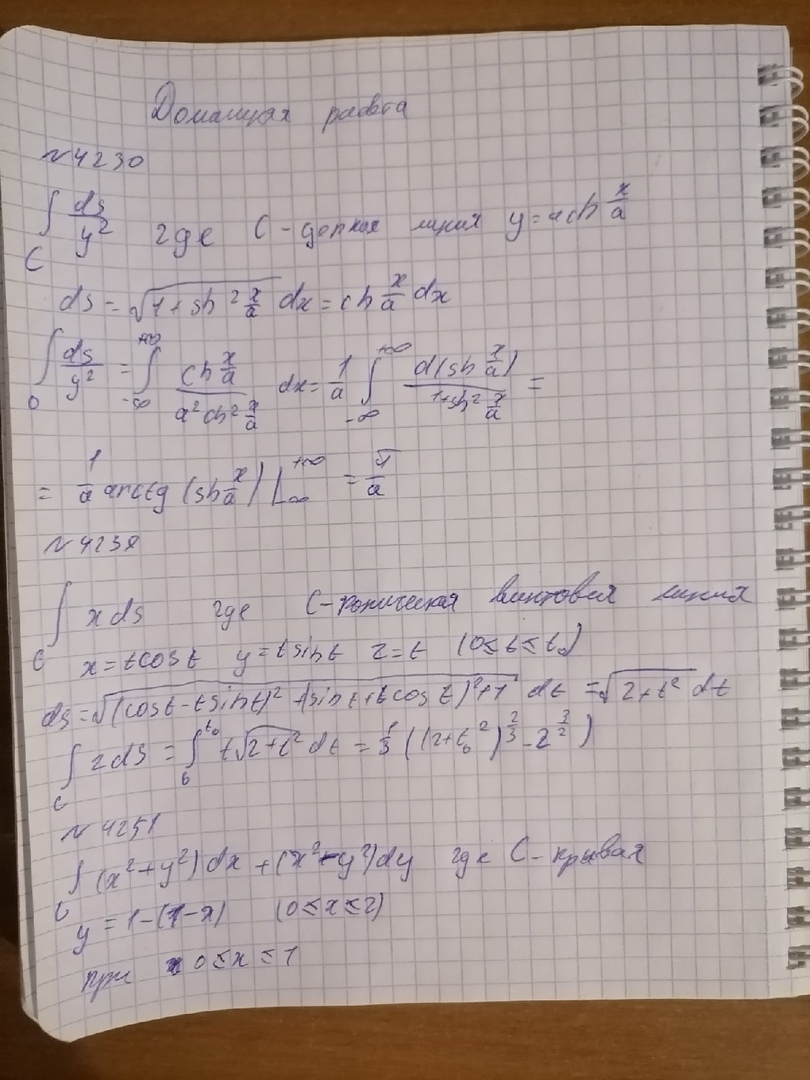 Домашняя работа
№4230
∫_C ds/y² где C - цепная линия y = a ch x/a
ds = √(1 + sh² x/a) dx = ch x/a dx
∫_0 ds/y² = ∫_{-∞}^{+∞} (ch x/a)/(a² ch² x/a) dx = 1/a ∫_{-∞}^{+∞} d(sh x/a)/(1 + sh² x/a) =
= 1/a arctg (sh x/a) |_{-∞}^{+∞} = π/a
№4238
∫_C x ds где C - коническая винтовая линия
x = t cos t y = t sin t z = t (0 ≤ t ≤ t₀)
ds = √((cos t - t sin t)² + (sin t + t cos t)² + 1) dt = √(2 + t²) dt
∫_C z ds = ∫_0^{t₀} t√(2 + t²) dt = 1/3 ((2 + t₀²)^{2/3} - 2^{3/2})
№4251
∫_C (x² + y²) dx + (x² - y²) dy где C - кривая
y = 1 - (1 - x) (0 ≤ x ≤ 2)
при 0 ≤ x ≤ 1